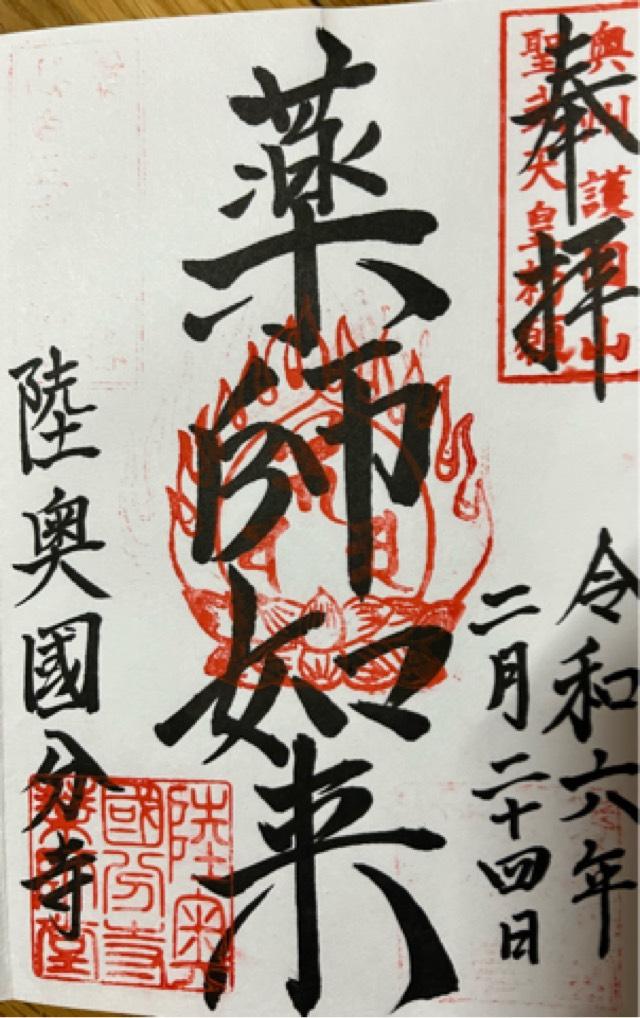 奉拝
奥州護国山
聖武天皇勅願
令和六年
二月二十四日
薬師如来
陸奥國分寺
陸奥
國分寺
薬師堂